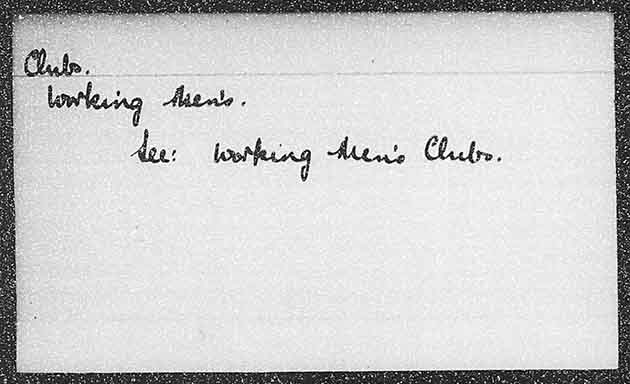 Clubs.
Working Men's.
See: Working Men's Clubs.